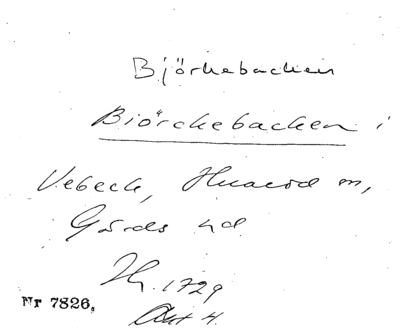 Björkebacken
Biörckebacken i
Vebeck, Huaröd sn,
Gärds hd
1729
Akt 4.
Nr 7826.